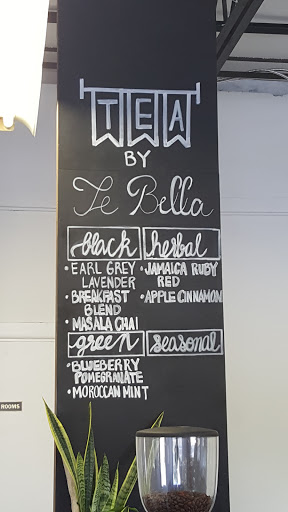 TEA
BY
Te Bella
black
• EARL GREY
LAVENDER
• BREAKFAST
BLEND
• MASALA CHAI
herbal
• JAMAICA RUBY
RED
• APPLE CINNAMON
green
• BLUEBERRY
POMEGRANATE
• MOROCCAN MINT
seasonal
ROOMS